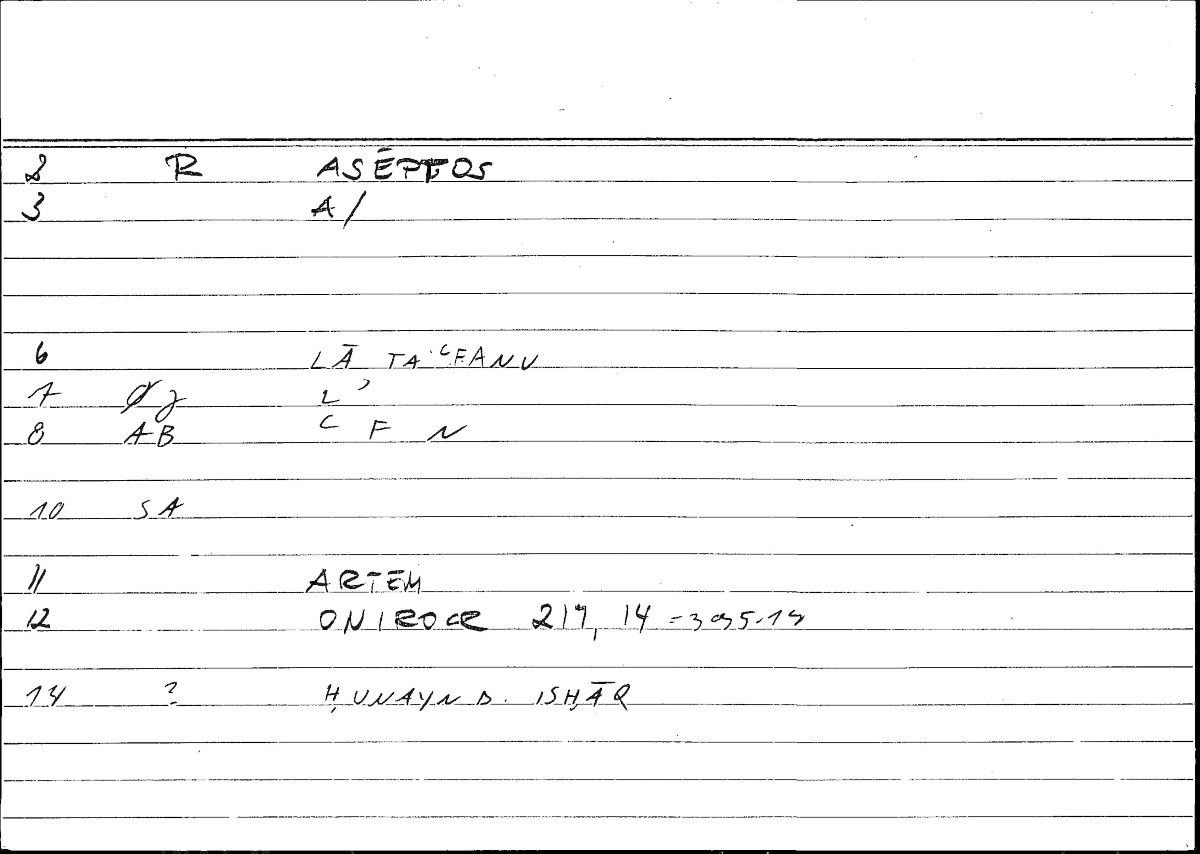 2 R ASĒPTOS
3 A/
6 LĀ TA ʿFANU
7 L ʾ
8 AB ʿ F N
10 SA
11 ARTEM
12 ONIROCR 217, 14 = 395.18
14 ? ḤUNAYN B. ISḤĀQ